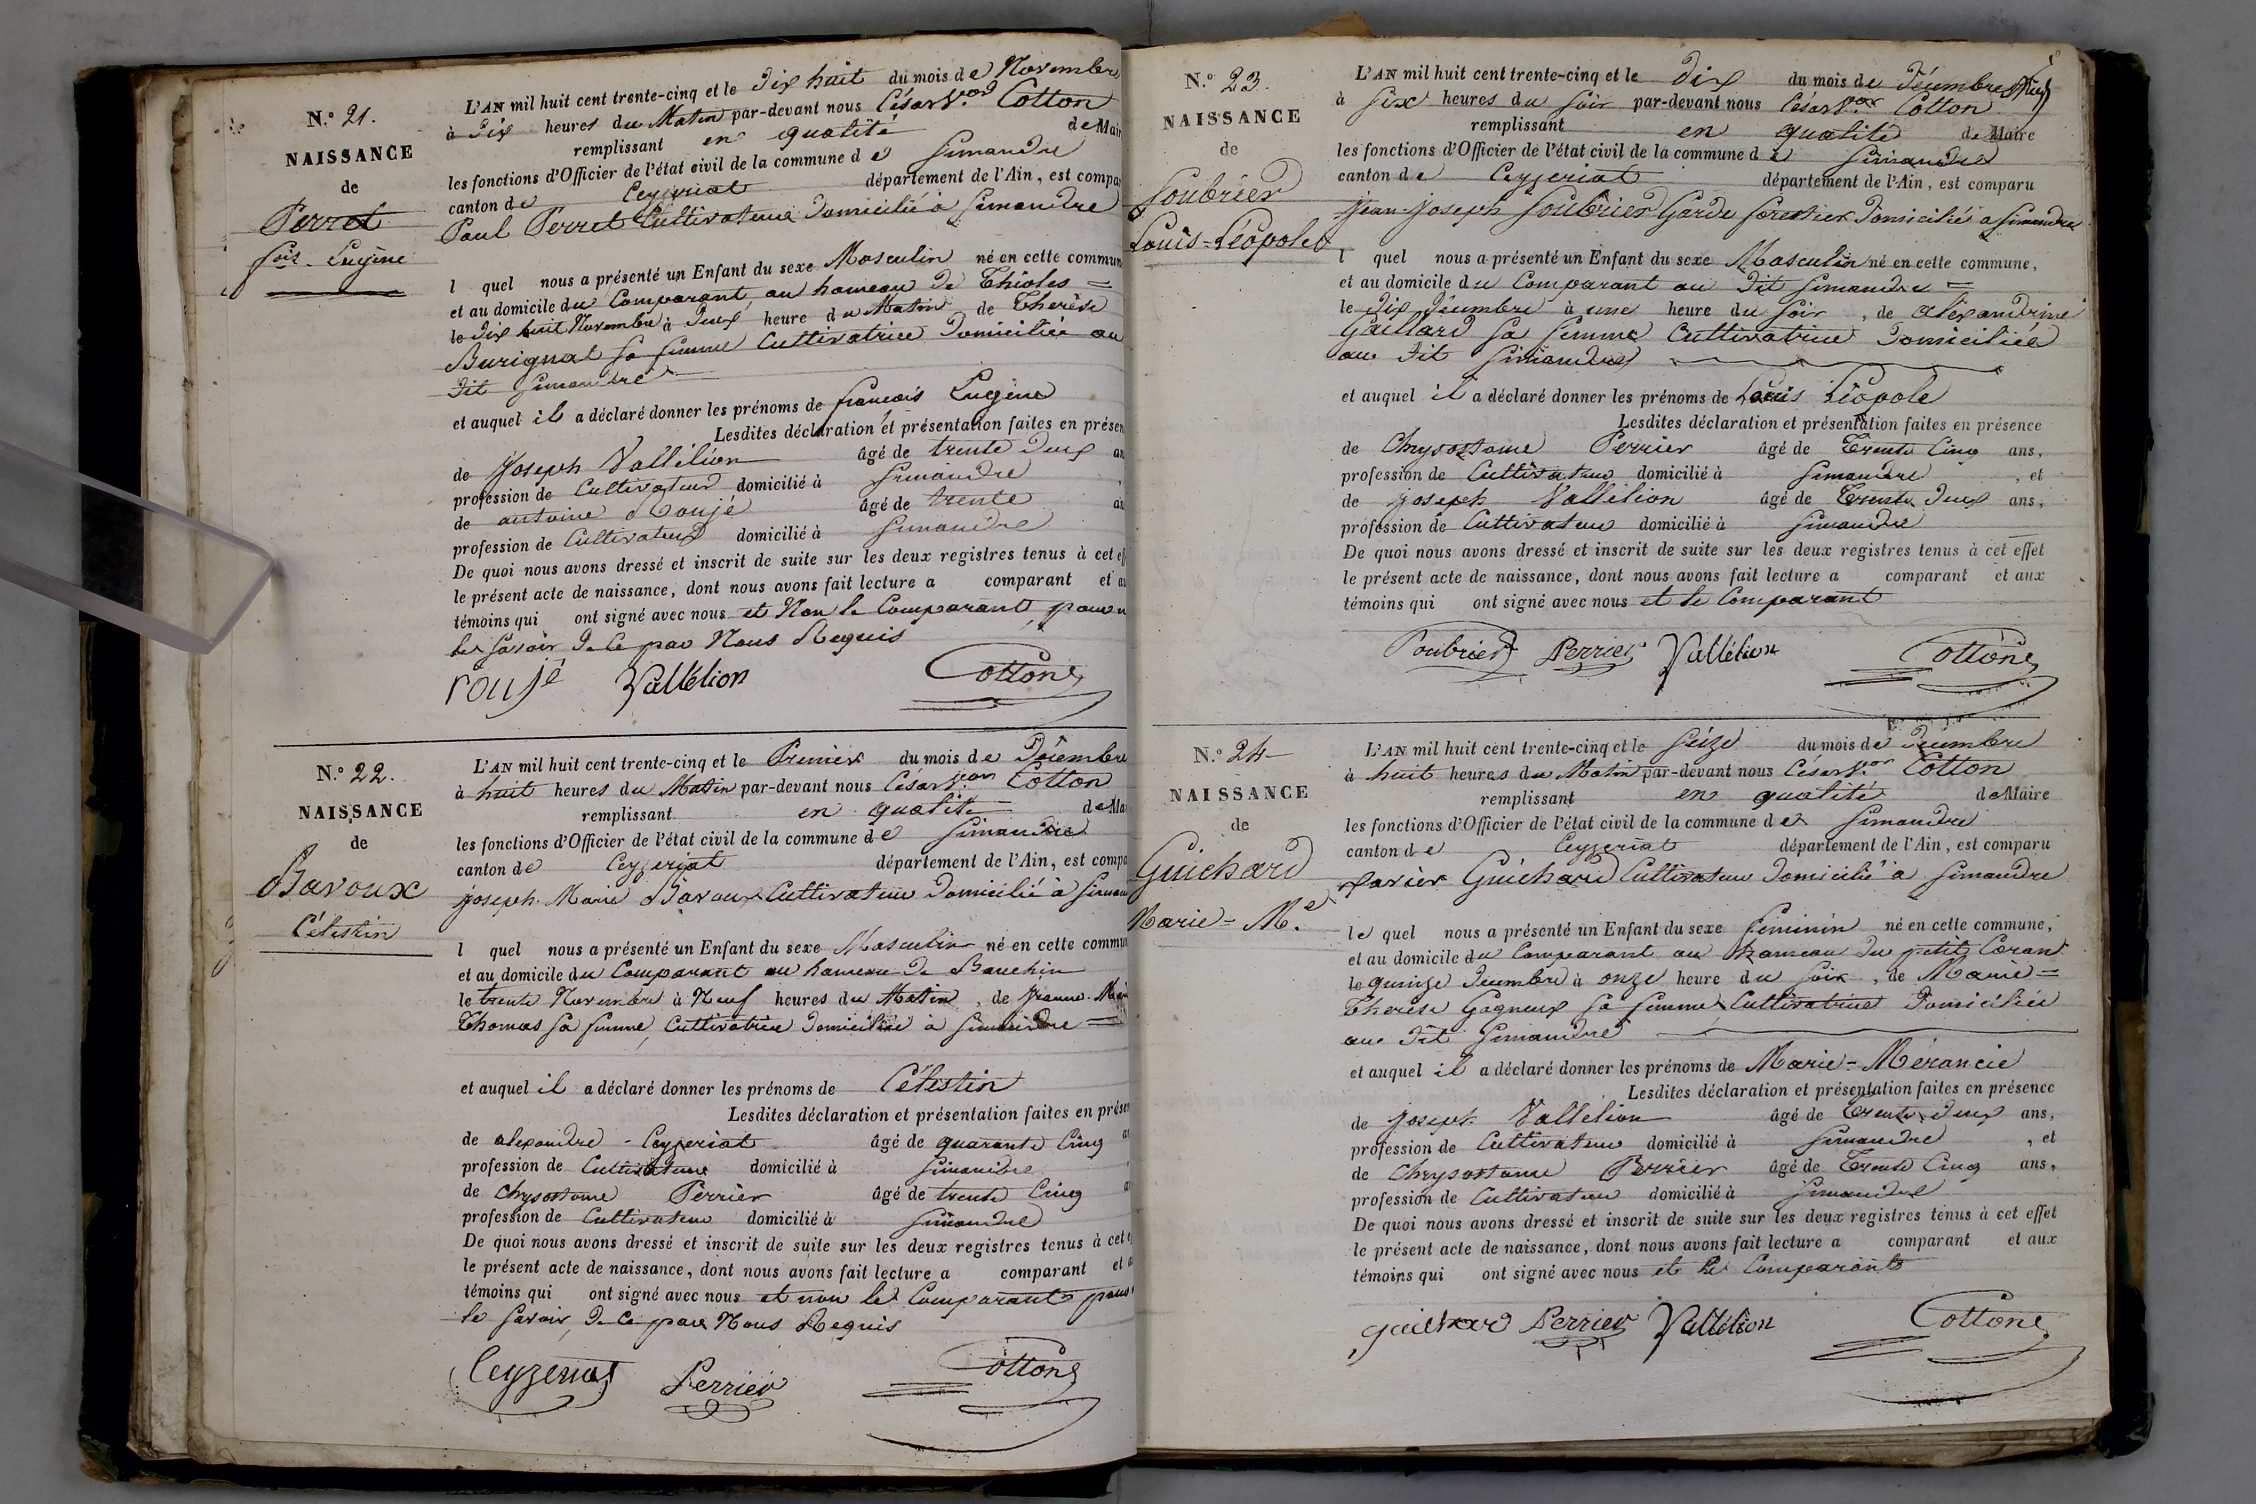 N.º 21.
NAISSANCE
de
Perret
fois. Eugène
L'AN mil huit cent trente-cinq et le dix huit du mois de Novembre
à dix heures du Matin par-devant nous César Vor Cotton
remplissant en qualité de Mair
les fonctions d'Officier de l'état civil de la commune de Simandre
canton de Ceyzeriat département de l'Ain, est compar
Paul Perret Cultivateur domicilié à Simandre
l quel nous a présenté un Enfant du sexe Masculin né en cette commun
et au domicile du Comparant, au hameau de Thioles =
le dix huit Novembre à deux heure du Matin de Therèse
Burignat sa femme Cultivatrice domiciliée au
dit Simandre
et auquel il a déclaré donner les prénoms de françois Eugène
Lesdites déclaration et présentation faites en présen
de Joseph Vallélion âgé de trente deux an
profession de Cultivateur domicilié à Simandre
de antoine Roujé âgé de trente an
profession de Cultivateur domicilié à Simandre
De quoi nous avons dressé et inscrit de suite sur les deux registres tenus à cet eff
le présent acte de naissance, dont nous avons fait lecture a comparant et au
témoins qui ont signé avec nous et Non le Comparant, pour n
le savoir de ce par Nous Requis
roujé Vallélion Cotton
N.º 22.
NAISSANCE
de
Bavoux
Célestin
L'AN mil huit cent trente-cinq et le Premier du mois de Décembre
à huit heures du Matin par-devant nous César Vor Cotton
remplissant en qualité de Mai
les fonctions d'Officier de l'état civil de la commune de Simandre
canton de Ceyzeriat département de l'Ain, est compa
Joseph Marie Bavoux Cultivateur domicilié à Siman
l quel nous a présenté un Enfant du sexe Masculin né en cette commun
et au domicile du Comparant au hameau de Banchin
le trente Novembre à Neuf heures du Matin, de Jeanne Mari
Thomas sa femme, Cultivatrice domiciliée à Simandre =
et auquel il a déclaré donner les prénoms de Célestin
Lesdites déclaration et présentation faites en présen
de alexandre Ceyzeriat âgé de quarante Cinq an
profession de Cultivateur domicilié à Simandre
de Chrysostome Perrier âgé de trente Cinq a
profession de Cultivateur domicilié à Simandre
De quoi nous avons dressé et inscrit de suite sur les deux registres tenus à cet e
le présent acte de naissance, dont nous avons fait lecture a comparant et a
témoins qui ont signé avec nous et non le Comparant, pour
le savoir, de ce par Nous Requis
Ceyzeriat Perrier Cotton
N.º 23.
NAISSANCE
de
Soubrier
Louis-Léopole
L'AN mil huit cent trente-cinq et le dix du mois de Décembre
à six heures du soir par-devant nous César Vor Cotton
remplissant en qualité de Maire
les fonctions d'Officier de l'état civil de la commune de Simandre
canton de Ceyzeriat département de l'Ain, est comparu
Jean-Joseph Soubrier Garde forestier domicilié a Simandre
l quel nous a présenté un Enfant du sexe Masculin né en cette commune,
et au domicile du Comparant au dit Simandre =
le dix Décembre à une heure du soir, de alexandrine
Gaillard sa femme Cultivatrice domiciliée
au dit Simandre
et auquel il a déclaré donner les prénoms de Louis Léopole
Lesdites déclaration et présentation faites en présence
de Chrysostome Perrier âgé de Trente Cinq ans,
profession de Cultivateur domicilié à Simandre, et
de Joseph Vallélion âgé de Trente deux ans,
profession de Cultivateur domicilié à Simandre
De quoi nous avons dressé et inscrit de suite sur les deux registres tenus à cet effet
le présent acte de naissance, dont nous avons fait lecture a comparant et aux
témoins qui ont signé avec nous et le Comparant
Soubrier Perrier Vallélion Cotton
N.º 24
NAISSANCE
de
Guichard
Marie-M.e
L'AN mil huit cent trente-cinq et le seize du mois de Décembre
à huit heures du Matin par-devant nous César Vor Cotton
remplissant en qualité de Maire
les fonctions d'Officier de l'état civil de la commune de Simandre
canton de Ceyzeriat département de l'Ain, est comparu
xavier Guichard Cultivateur domicilié à Simandre
le quel nous a présenté un Enfant du sexe féminin né en cette commune,
et au domicile du Comparant au hameau du petit Coran
le quinze Décembre à onze heure du soir, de Marie =
Therèse Gagneux sa femme Cultivatrice domiciliée
au dit Simandre
et auquel il a déclaré donner les prénoms de Marie-Mérancie
Lesdites déclaration et présentation faites en présence
de Joseph Vallélion âgé de Trente deux ans,
profession de Cultivateur domicilié à Simandre, et
de Chrysostome Perrier âgé de Trente Cinq ans,
profession de Cultivateur domicilié à Simandre
De quoi nous avons dressé et inscrit de suite sur les deux registres tenus à cet effet
le présent acte de naissance, dont nous avons fait lecture a comparant et aux
témoins qui ont signé avec nous et le Comparant
guichard Perrier Vallélion Cotton